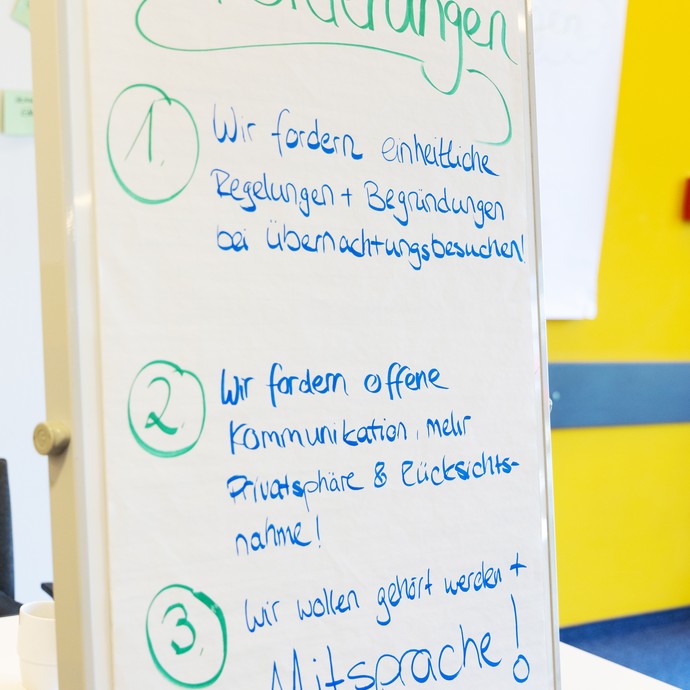 1. Wir fordern einheitliche
Regelungen + Begründungen
bei Übernachtungsbesuchen!
2. Wir fordern offene
Kommunikation, mehr
Privatsphäre & Rücksichts-
nahme!
3. Wir wollen gehört werden +
Mitsprache!